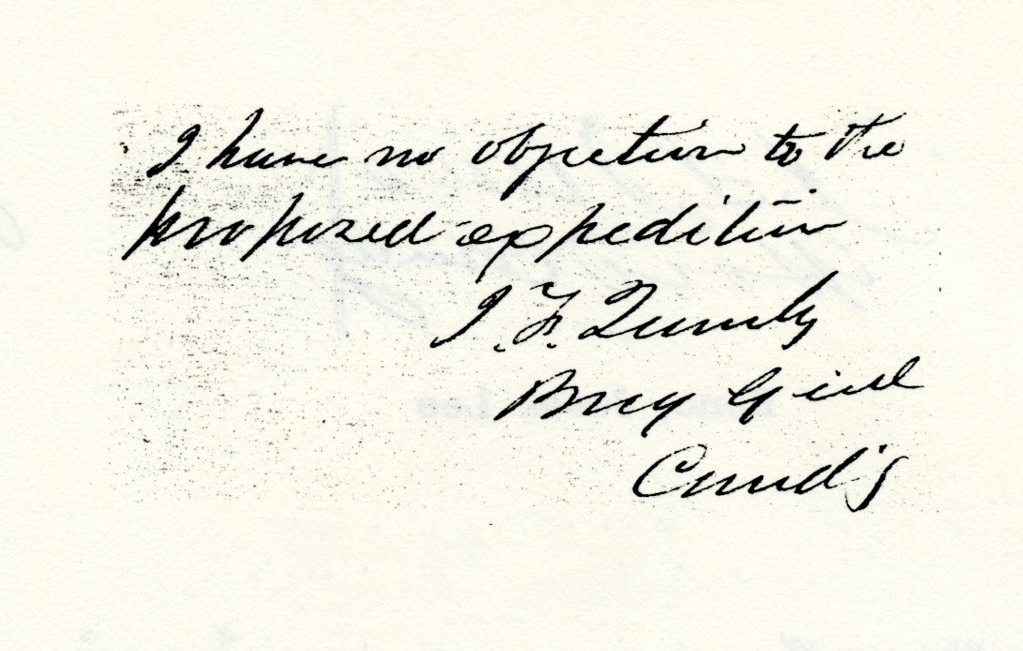 I have no objection to the
proposed expedition
I. F. Quinby
Brig Genl
Comd'g